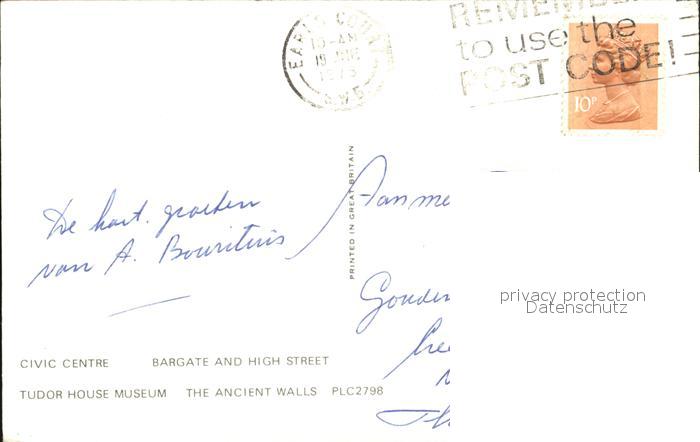 EARLS COURT
10-AM
19
S.W.5
REMEMBER
to use the
POST CODE!
10P
De hart. groeten
van A. Bouritius
PRINTED IN GREAT BRITAIN
Aan me
Gouden
privacy protection
Datenschutz
CIVIC CENTRE BARGATE AND HIGH STREET
TUDOR HOUSE MUSEUM THE ANCIENT WALLS PLC2798